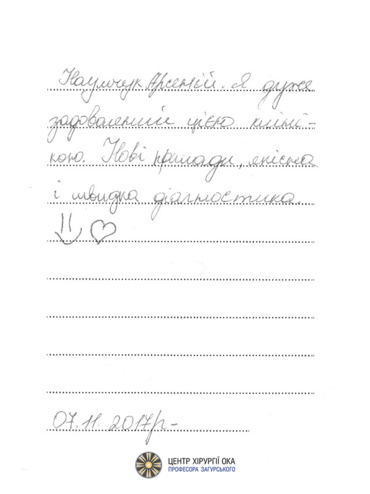 Наумчук Арсеній. Я дуже
задоволений цією кліні-
кою. Нові прилади, якісна
і швидка діагностика.
07.11.2017р-
ЦЕНТР ХІРУРГІЇ ОКА
ПРОФЕСОРА ЗАГУРСЬКОГО